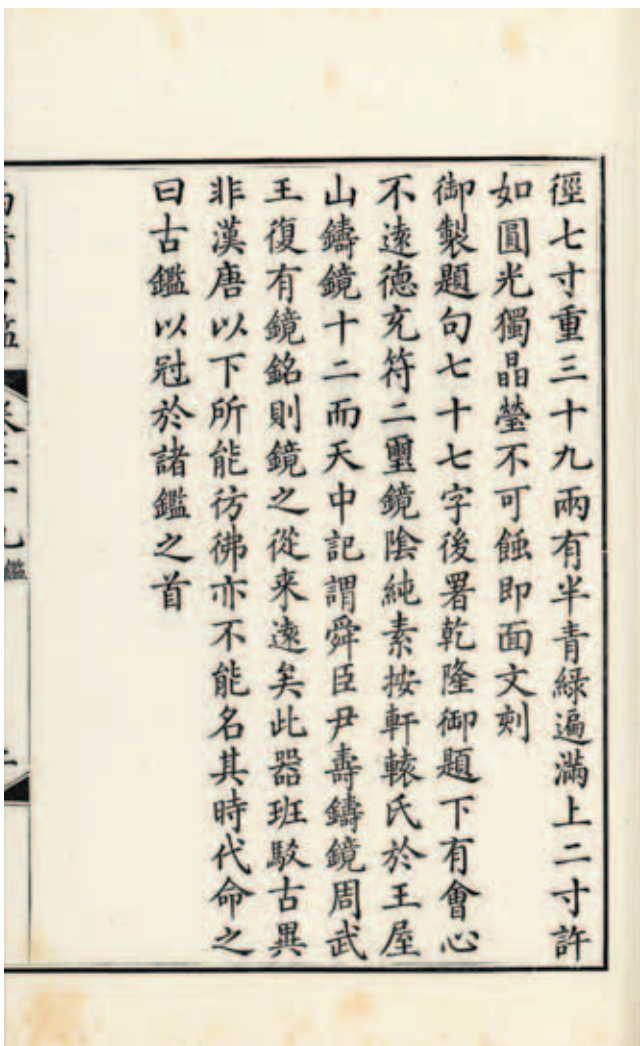 徑七寸重三十九兩有半青綠遍滿上二寸許
如圓光獨晶瑩不可蝕即面文刻
御製題句七十七字後署乾隆御題下有會心
不遠德充符二璽鏡陰純素按軒轅氏於王屋
山鑄鏡十二而天中記謂舜臣尹壽鑄鏡周武
王復有鏡銘則鏡之從来遠矣此器班駁古異
非漢唐以下所能彷彿亦不能名其時代命之
曰古鑑以冠於諸鑑之首